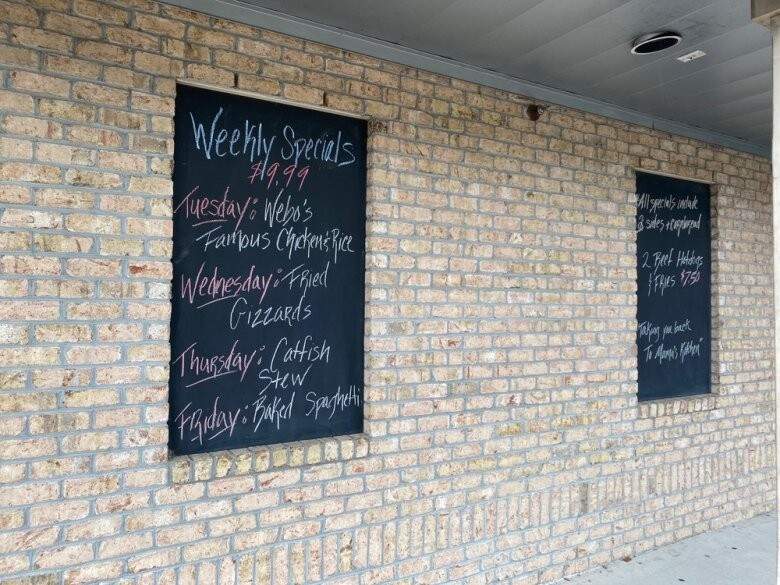 Weekly Specials
$19.99
Tuesday: Webo's
Famous Chicken & Rice
Wednesday: Fried
Gizzards
Thursday: Catfish
Stew
Friday: Baked Spaghetti
All specials include
2 sides + cornbread
2 Beef Hotdogs
& Fries $7.50
Taking you back
To Mama's Kitchen"